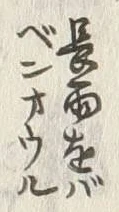 長雨をバ
ベンオウル